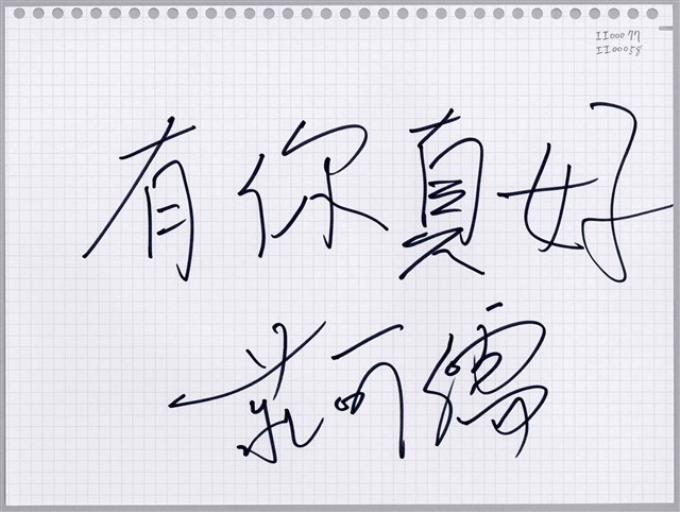 II00077
II00058
有你真好